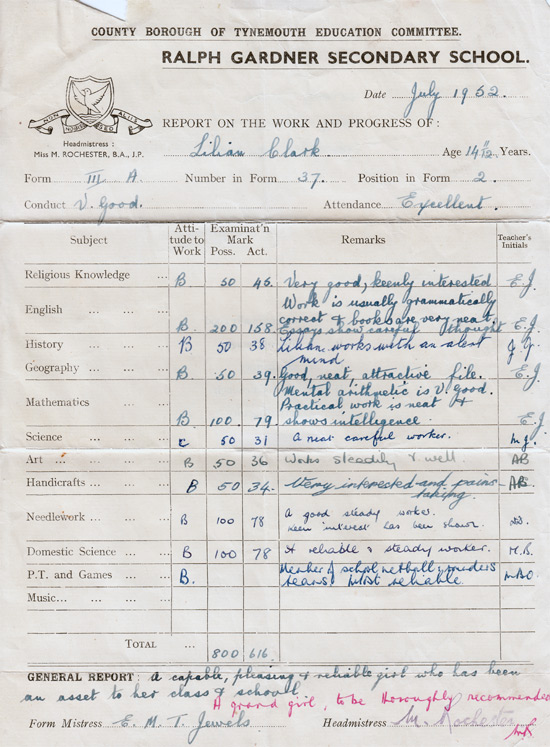 COUNTY BOROUGH OF TYNEMOUTH EDUCATION COMMITTEE.
RALPH GARDNER SECONDARY SCHOOL.
Date July 1952
REPORT ON THE WORK AND PROGRESS OF:
Headmistress:
Miss M. ROCHESTER, B.A., J.P.
Lilian Clark Age 14 Years.
Form III A Number in Form 37. Position in Form 2.
Conduct V. Good. Attendance Excellent.
Subject Attitude to Work Examinat'n Mark Poss. Act. Remarks Teacher's Initials
Religious Knowledge ... B 50 45. Very good, keenly interested E.J.
English ... ... ... B. 200 158. Work is usually grammatically
correct & books are very neat
Essays show careful thought E.J.
History ... ... ... B 50 38 Lilian works with an alert
mind J.J.
Geography ... ... ... B 50 39. Good, neat, attractive file. E.J.
Mathematics ... ... B 100. 79 Mental arithmetic is V. good.
Practical work is neat &
shows intelligence E.J.
Science ... ... ... C 50 31 A neat careful worker. M.J.
Art ... ... ... ... B 50 36 Works steadily & well AB
Handicrafts ... ... ... B 50 34. Very interested and pains-
taking. AB.
Needlework ... ... ... B 100 78 A good steady worker.
Keen interest has been shown.
Domestic Science ... ... B 100 78 A reliable & steady worker. M.B.
P.T. and Games ... ... B. Member of school netball & rounders
teams. Most reliable.
Music... ... ... ...
TOTAL ... 800 616.
GENERAL REPORT: A capable, pleasing & reliable girl who has been
an asset to her class & school.
A grand girl, to be thoroughly recommended
Form Mistress E. M. T. Jewels Headmistress M. Rochester